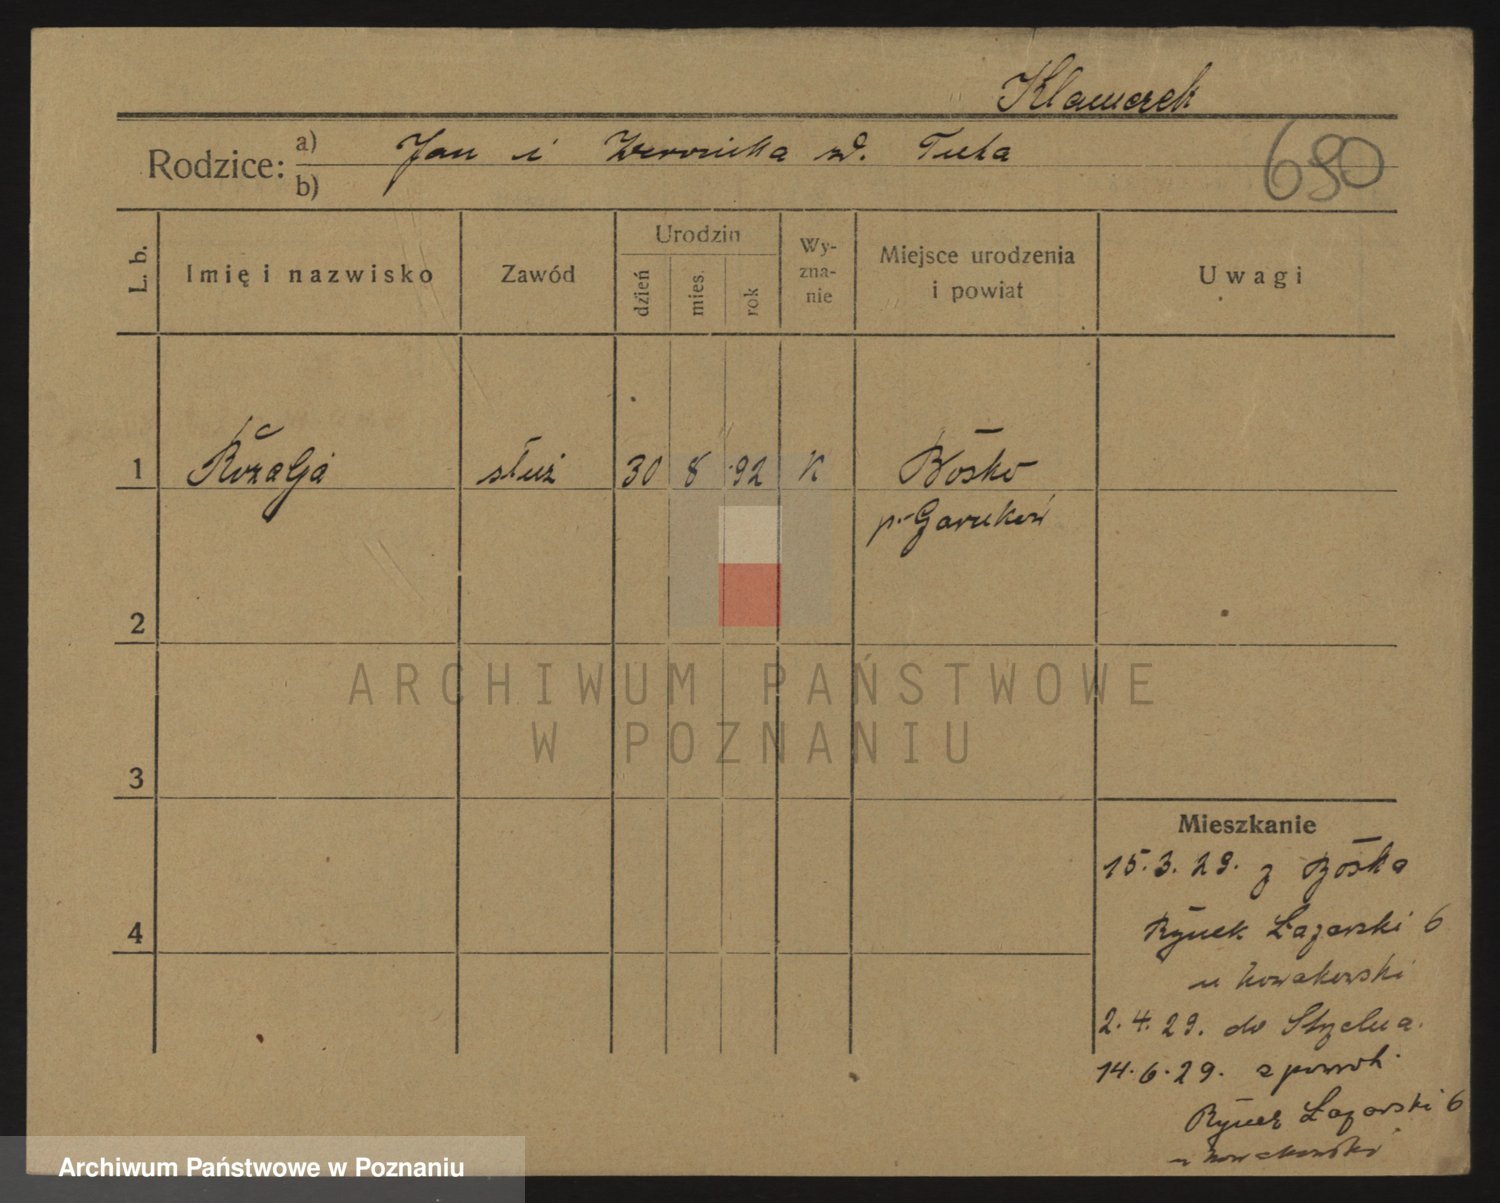 Klamerek
Rodzice: a) Jan i Weronika zd. Tuta
b)
690
L. b.
Imię i nazwisko
Zawód
Urodzin
dzień
mies.
rok
Wy-
zna-
nie
Miejsce urodzenia
i powiat
Uwagi
1 Rozalja służ 30 8 92 K
2
3
4
Mieszkanie
15.3.29. z
Rynek Łazarski 6
u Nowakowski
2.4.29. do
14.6.29. z powrot.
Rynek Łazarski 6
u Nowakowski
ARCHIWUM PAŃSTWOWE
W POZNANIU
Archiwum Państwowe w Poznaniu